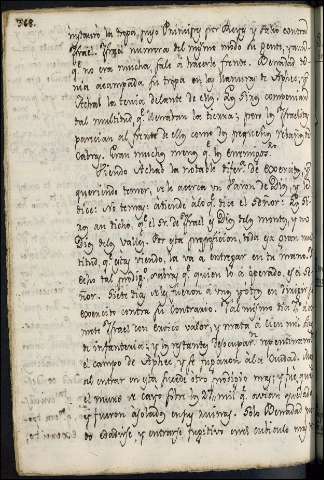 368.
instauró la tropa, puso Principes por Reyes y salió contra
Israel. Israel numera del mismo modo su gente, y aunq.e
q.e no era mucha, sale á hacerle frente. Benadad te-
nia acampada su tropa en las llanuras de Aphec, y
Achab la tenia delante de ellos. Los Siros componian
tal multitud, q.e llenaban la tierra; pero los Israelitas
parecian al frente de ellos como dos pequeños rebaños de
Cabras. Eran muchos menos q.e los enemigos.
Viendo Achab la notable difer.a de Exercitos, y
queriendo temer, se le acerca un Varon de Dios, y le
dice: No temas: atiende a lo q.e dice el Señor: Los Si-
ros an dicho q.e el Sr. de Israel es Dios de los montes, y no
Dios de los Valles. Por esta proposicion, toda esa gran mul-
titud q.e estas viendo, la va a entregar en tu mano.
Echo tal prodig.o sabras q.e quien lo a operado, es el Se-
ñor. Siete dias se estubieron a unos y otros en dirigir su
exercito contra su contrario. Y al mismo dia 7.o aco-
mete Israel con eroico valor, y mata a cien mil Siros
de infanteria; y en instantes desocuparon enteramente
el campo de Aphec y se fugaron a la Ciudad. Mas
al entrar en esta sucede otro prodigio mas; y fue, que
el muro se cayó sobre 27 mil q.e avian quedado
y fueron asolados en sus ruinas. Solo Benadad pu-
do evadirse y entrarse fugitivo en el cubiculo mas